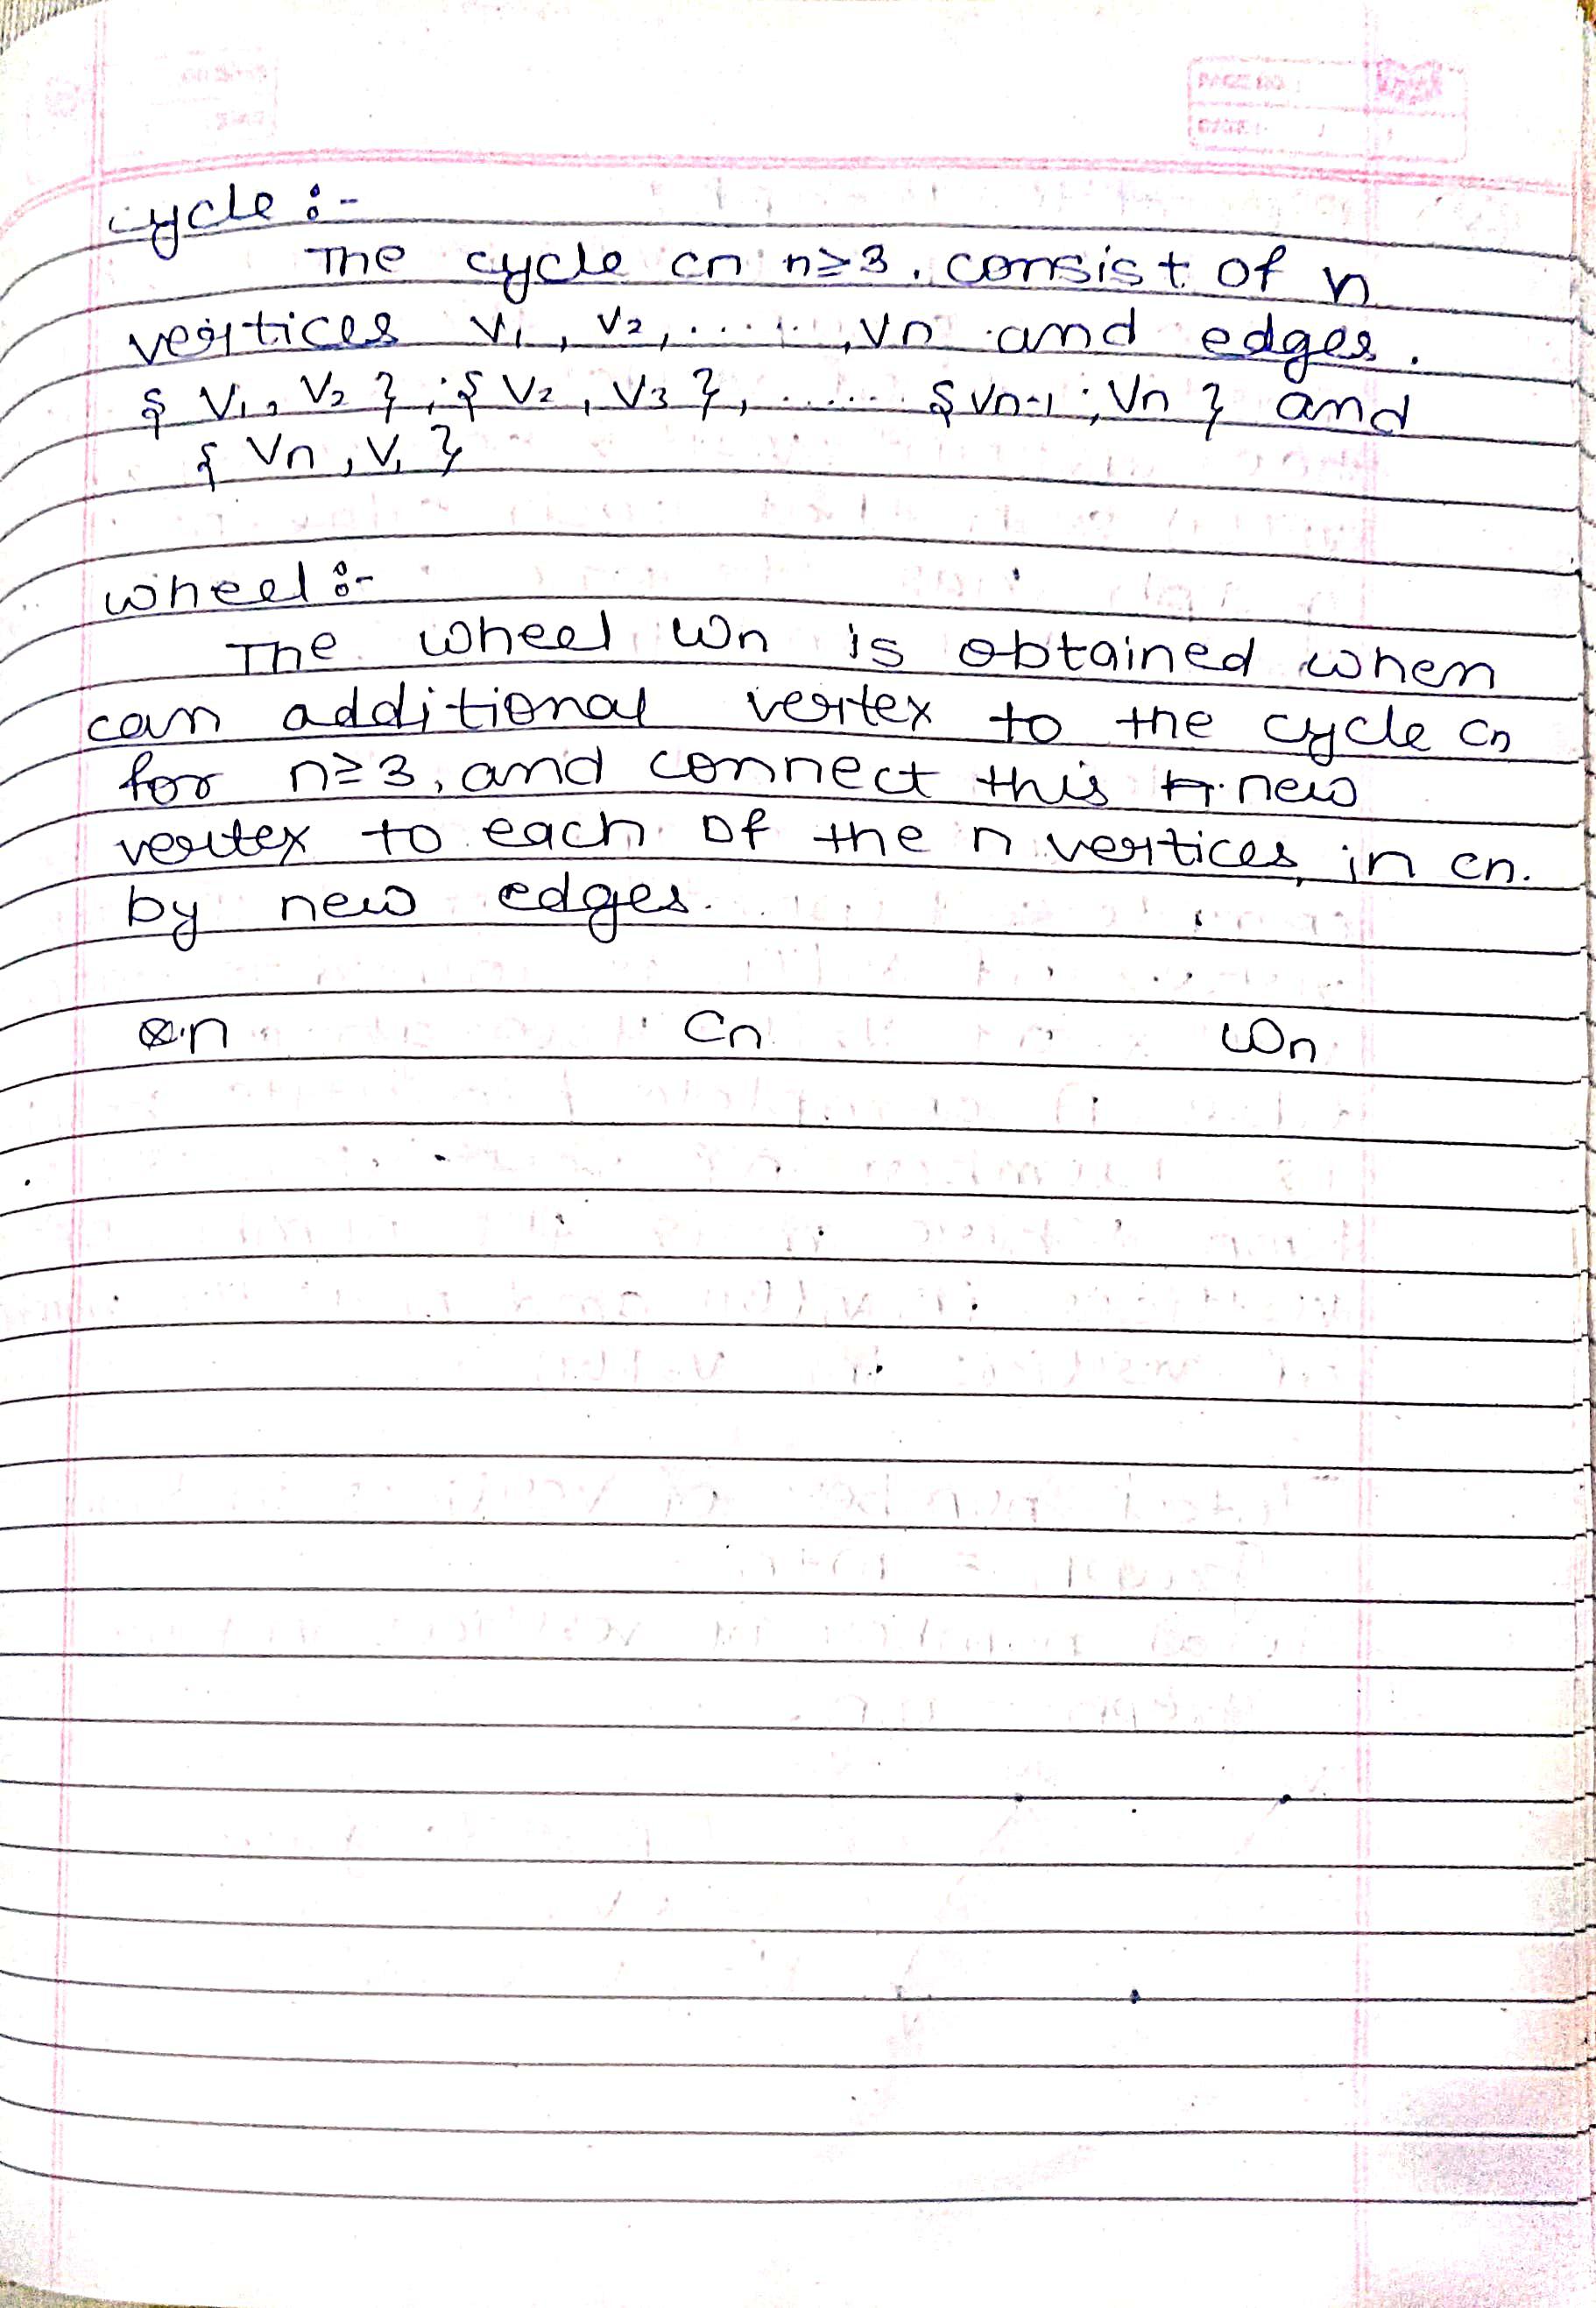 cycle :-
The cycle cn n≥3, consist of n
vertices v1, v2, ......., vn and edges.
{ v1, v2 }, { v2, v3 }, ....... { vn-1, vn } and
{ vn, v1 }
wheel :-
The wheel wn is obtained when
can additional vertex to the cycle cn
for n≥3, and connect this new
vertex to each of the n vertices, in cn.
by new edges.
n Cn Wn